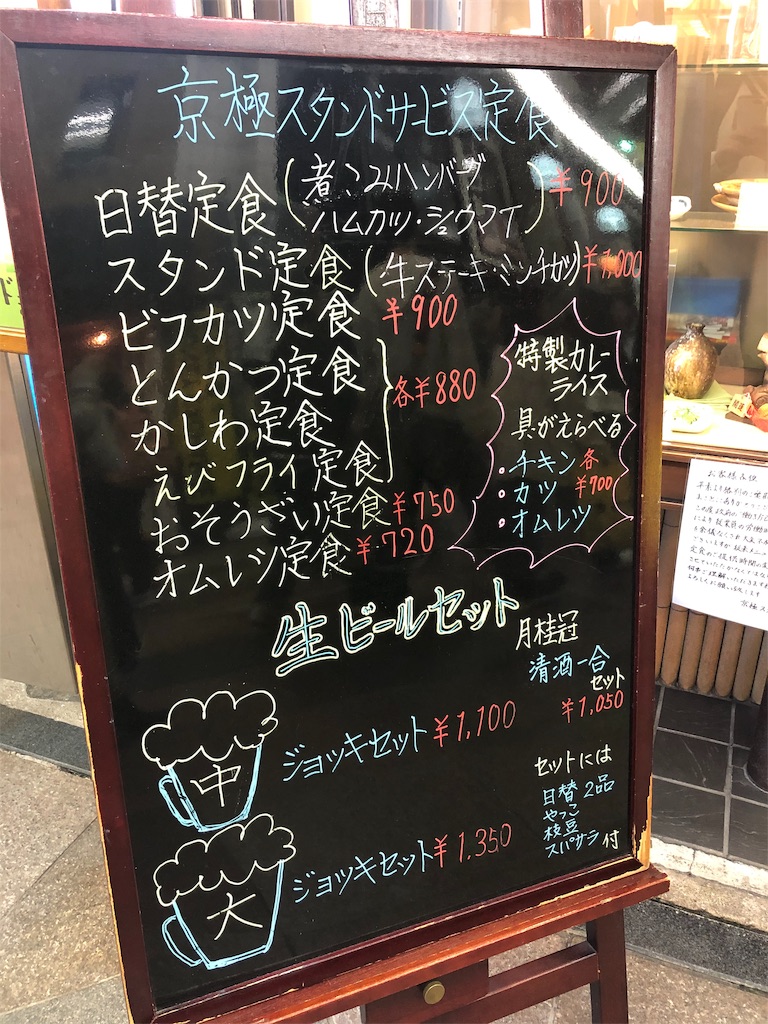 京極スタンドサービス定食
日替定食(煮こみハンバーグ
ハムカツ・シュウマイ)¥900
スタンド定食(牛ステーキ・ミンチカツ)¥1,000
ビフカツ定食 ¥900
とんかつ定食
かしわ定食
えびフライ定食
各¥880
おそうざい定食¥750
オムレツ定食¥720
特製カレー
ライス
具がえらべる
・チキン
・カツ
・オムレツ
各
¥700
生ビールセット
中
ジョッキセット¥1,100
大
ジョッキセット¥1,350
月桂冠
清酒一合
セット
¥1,050
セットには
日替2品
やっこ
枝豆
スパサラ付
お客様各位